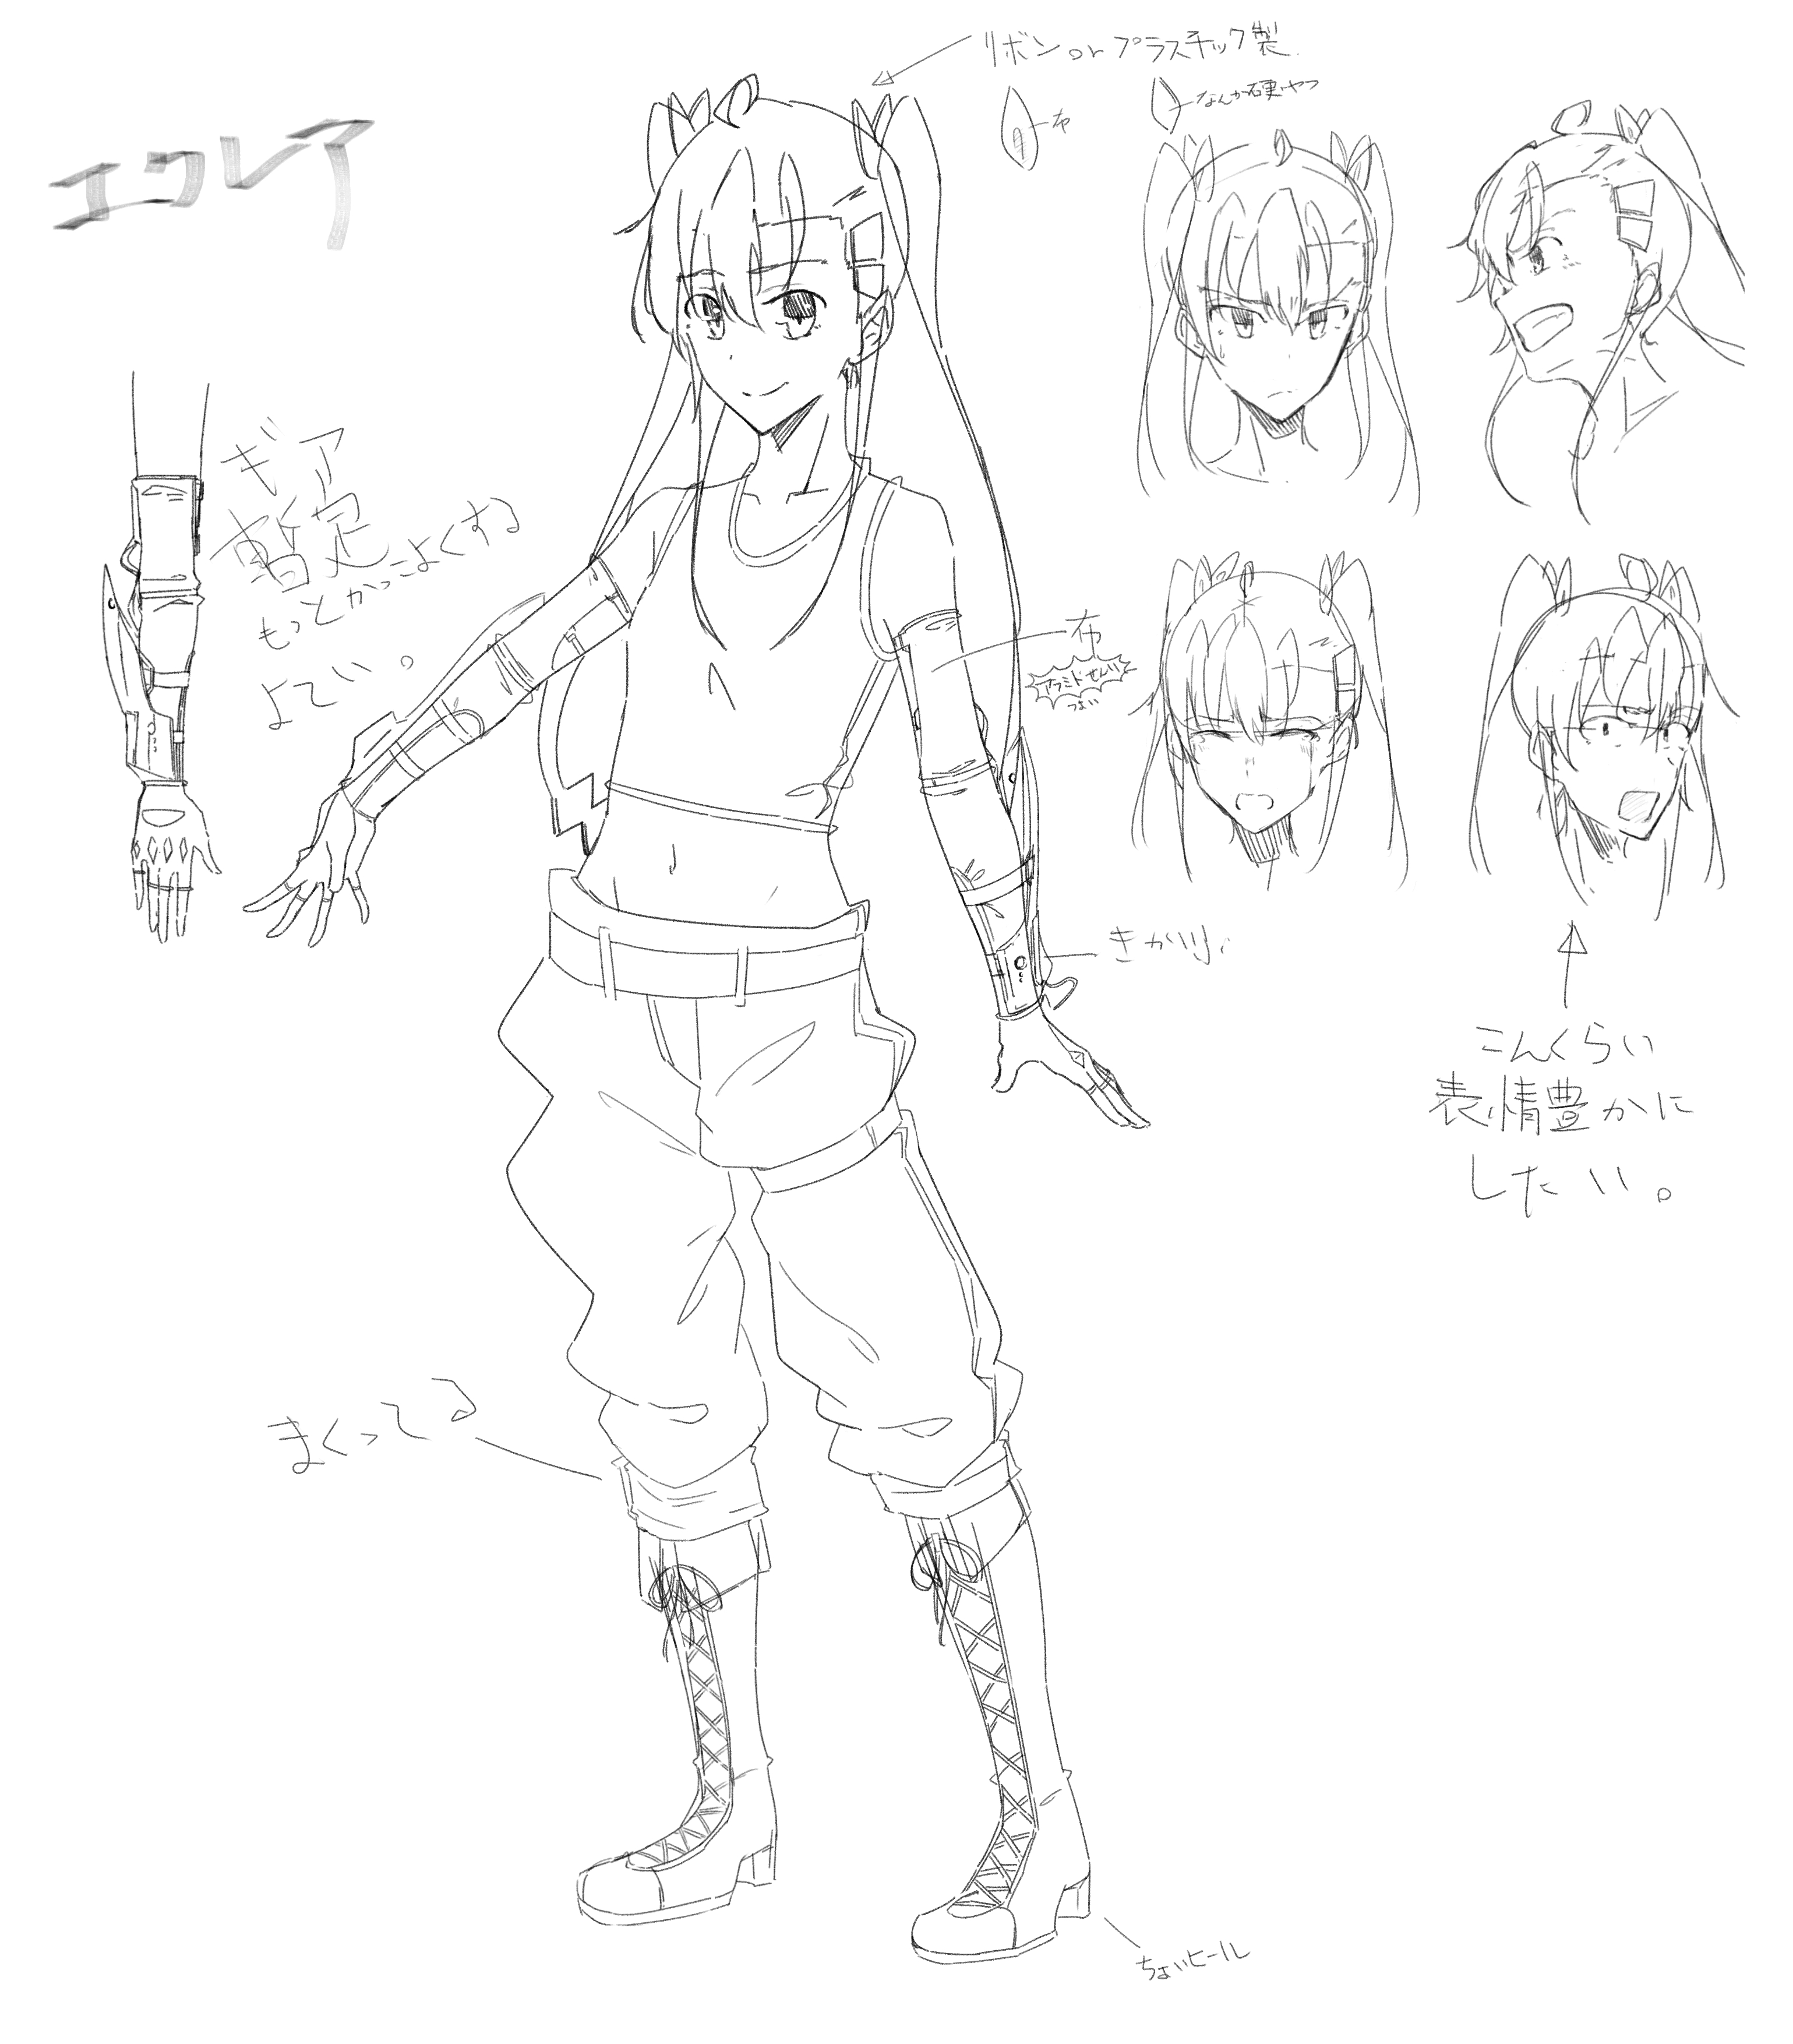 エクレア
リボン or プラスチック製
布
なんか硬いやつ
ギア
暫定
もっとかっこよくする
よてい。
布
アラミドせんい
つよい
きかい
こんくらい
表情豊かに
したい。
まくってる
ちょいヒール